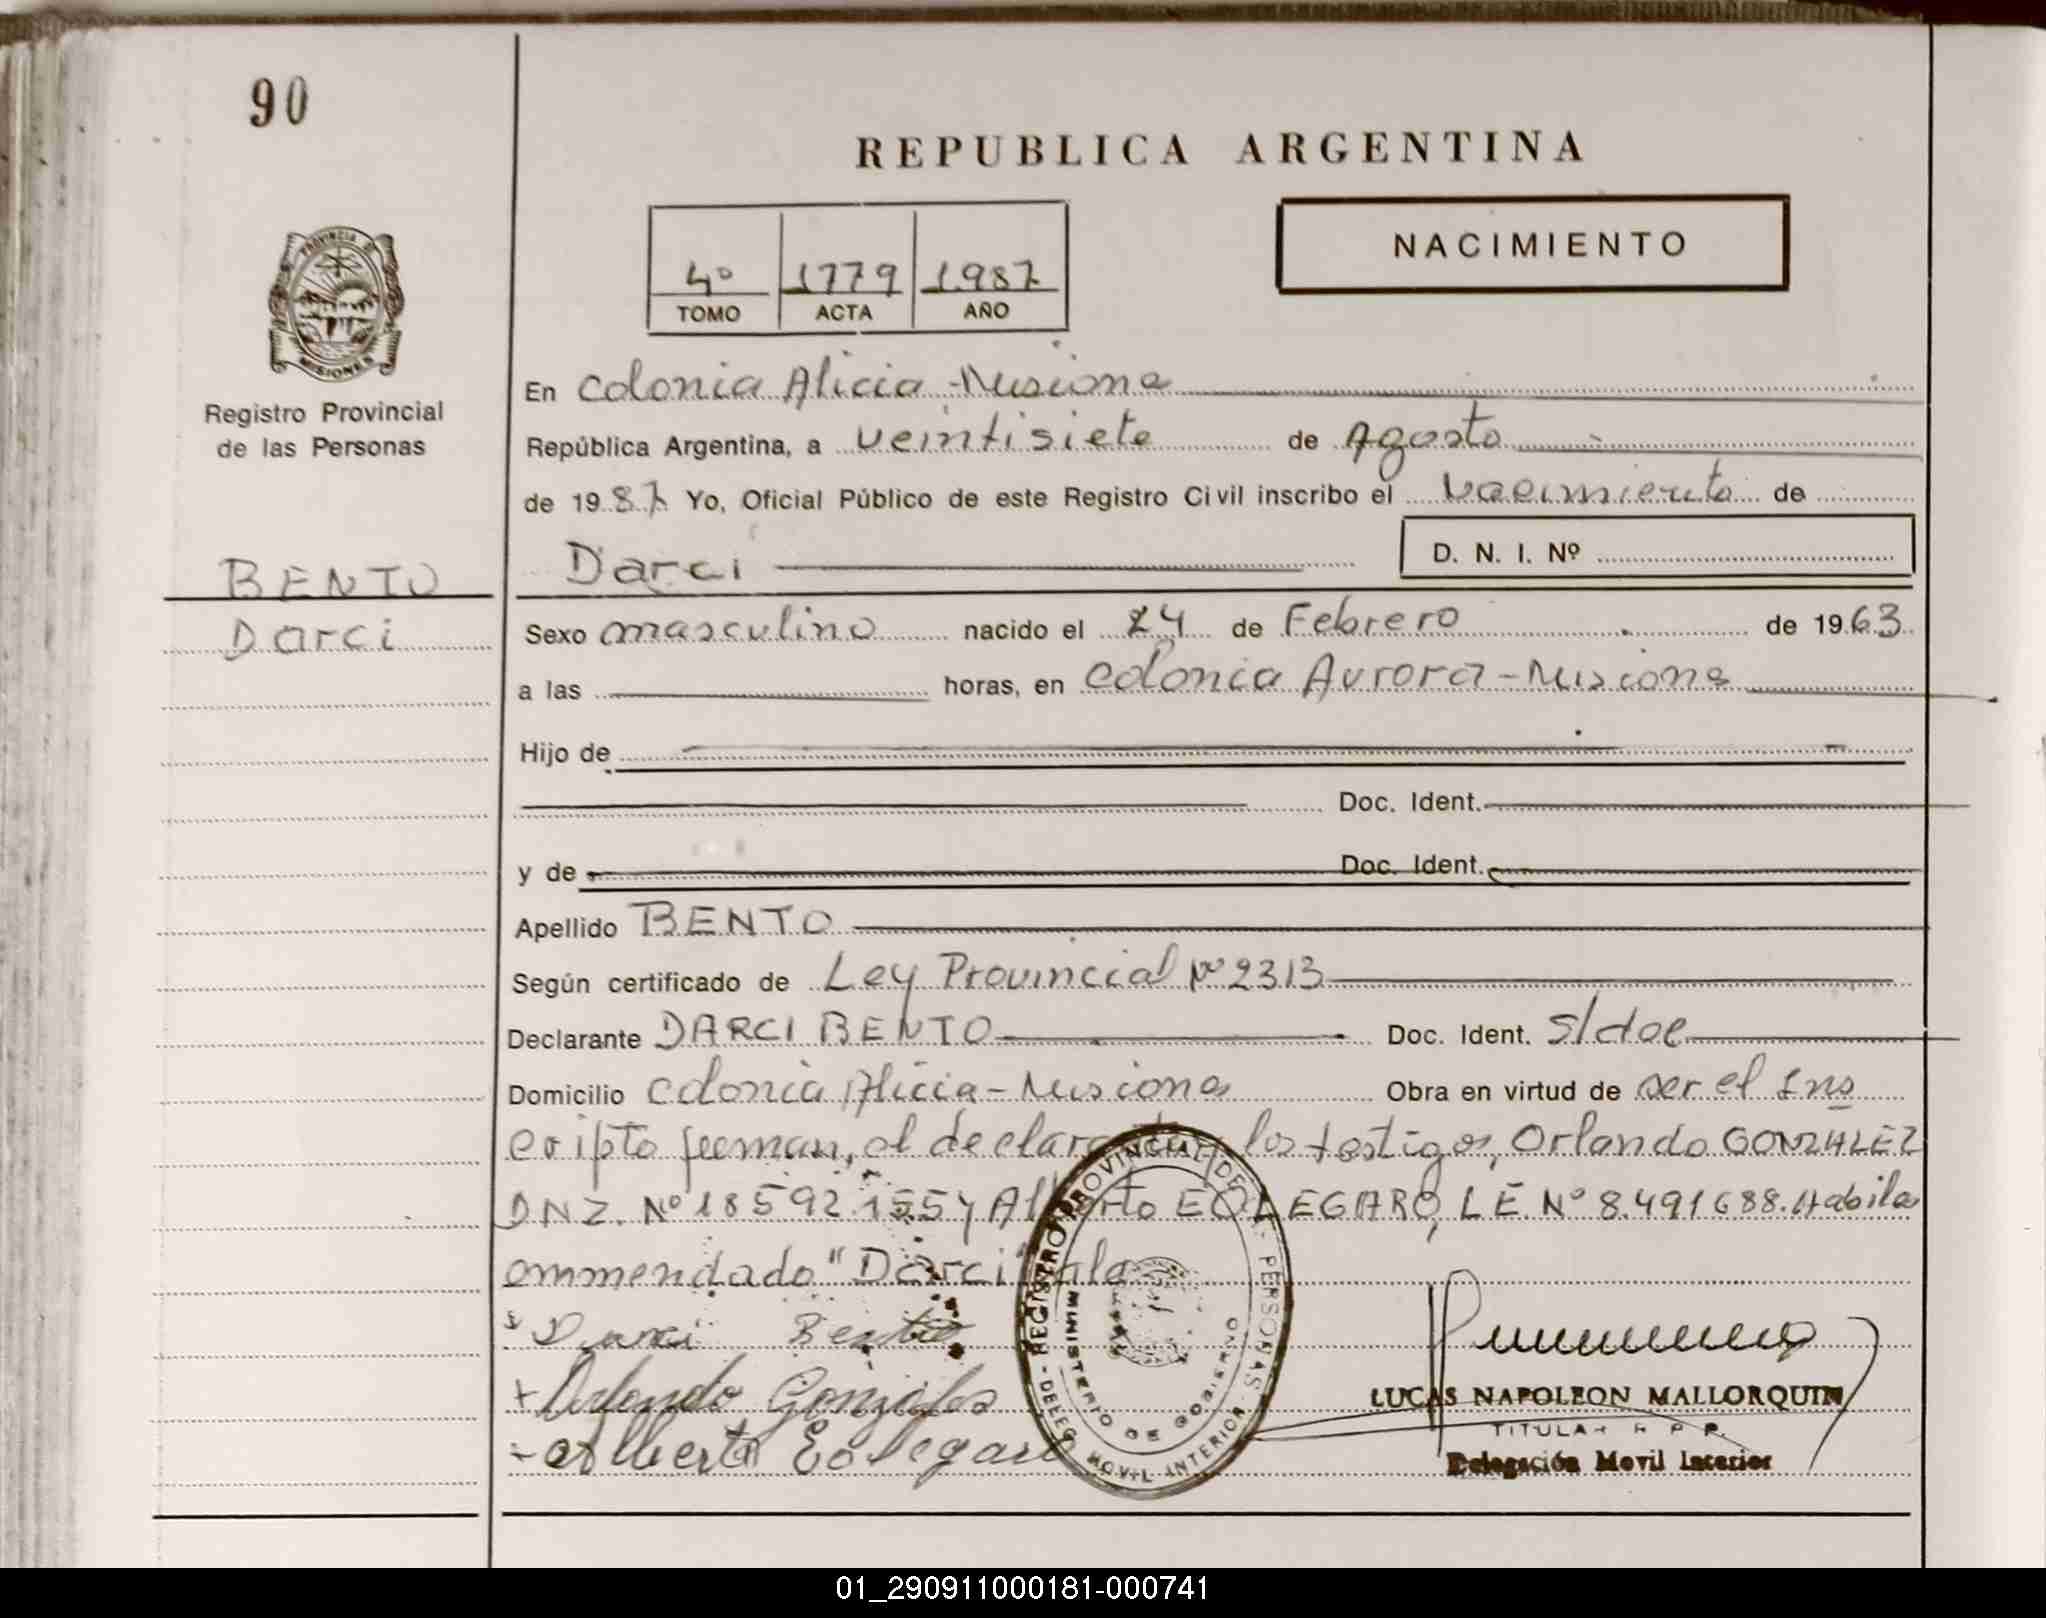 90
REPUBLICA ARGENTINA
PROVINCIA D
MISIONES
Registro Provincial
de las Personas
4º 1779 1987
TOMO ACTA AÑO
NACIMIENTO
En Colonia Alicia - Misiones
República Argentina, a veintisiete de Agosto
de 1987 Yo, Oficial Público de este Registro Civil inscribo el nacimiento de
BENTO
Darci
Darci
D. N. I. Nº
Sexo masculino nacido el 24 de Febrero de 1963
a las horas, en Colonia Aurora - Misiones
Hijo de
Doc. Ident.
y de Doc. Ident.
Apellido BENTO
Según certificado de Ley Provincial Nº 2313
Declarante DARCI BENTO Doc. Ident. s/doc
Domicilio Colonia Alicia - Misiones Obra en virtud de ser el Ins
cripto firman, el declarante y los testigos, Orlando GONZALEZ
DNI. Nº 18592.155 y Alberto EOLEGARO, L E. Nº 8.491688.
ommendado "Darci" Vale
Darci Bento
+ Orlando Gonzales
- Alberto Eolegaro
REGISTRO PROVINCIAL DE PERSONAS
- DELEG. MOVIL INTERIOR -
MINISTERIO DE GOBIERNO
LUCAS NAPOLEON MALLORQUIN
TITULAR R P P.
Delegación Movil Interior
01_290911000181-000741